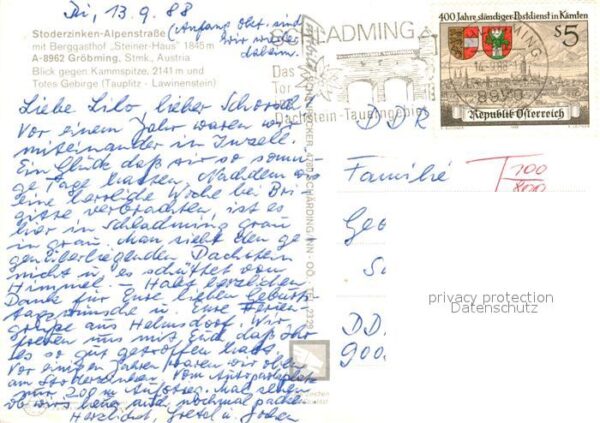 Di, 13.9.88
(Anfang Okt. sind
wir wieder
daheim.
Stoderzinken-Alpenstraße
mit Berggasthof „Steiner-Haus" 1845 m
A-8962 Gröbming, Stmk., Austria
Blick gegen Kammspitze, 2141 m und
Totes Gebirge (Tauplitz - Lawinenstein)
Liebe Lilo, lieber Schorsch
Vor einem Jahr waren wir
miteinander in Inzell.
Ein Glück daß wir so sonni-
ge Tage hatten. Nachdem wir
eine herrliche Woche bei Bri-
gitte verbrachten, ist es
hier in Schladming grau
in grau. Man sieht den ge-
genüberliegenden Dachstein
nicht u. es schüttet vom
Himmel. – Habt herzlichen
Dank für Eure lieben Geburts-
tagswünsche u. Eure Ferien-
grüße aus Helmsdorf. Wir
freuen uns mit Euch daß Ihr
es so gut getroffen habt.
Vor einigen Jahren waren wir oben
am Stoderzinken. Vom Autoparkplatz
nur 200 m Aufstieg. Mal sehen
ob wirs heuer auch nochmal packen
Herzlichst, Gretel u.
SCHLADMING
Das
Tor
Dachstein-Tauerngebiet
SCHLADMING
14.-9.88-1
8970
400 Jahre ständiger Postdienst in Kärnten
S5
Republik Österreich
4780 SCHÄRDING/INN - OÖ. TEL.
DDR
Familie
T 100
800
Geo
S
DD
900
privacy protection
Datenschutz